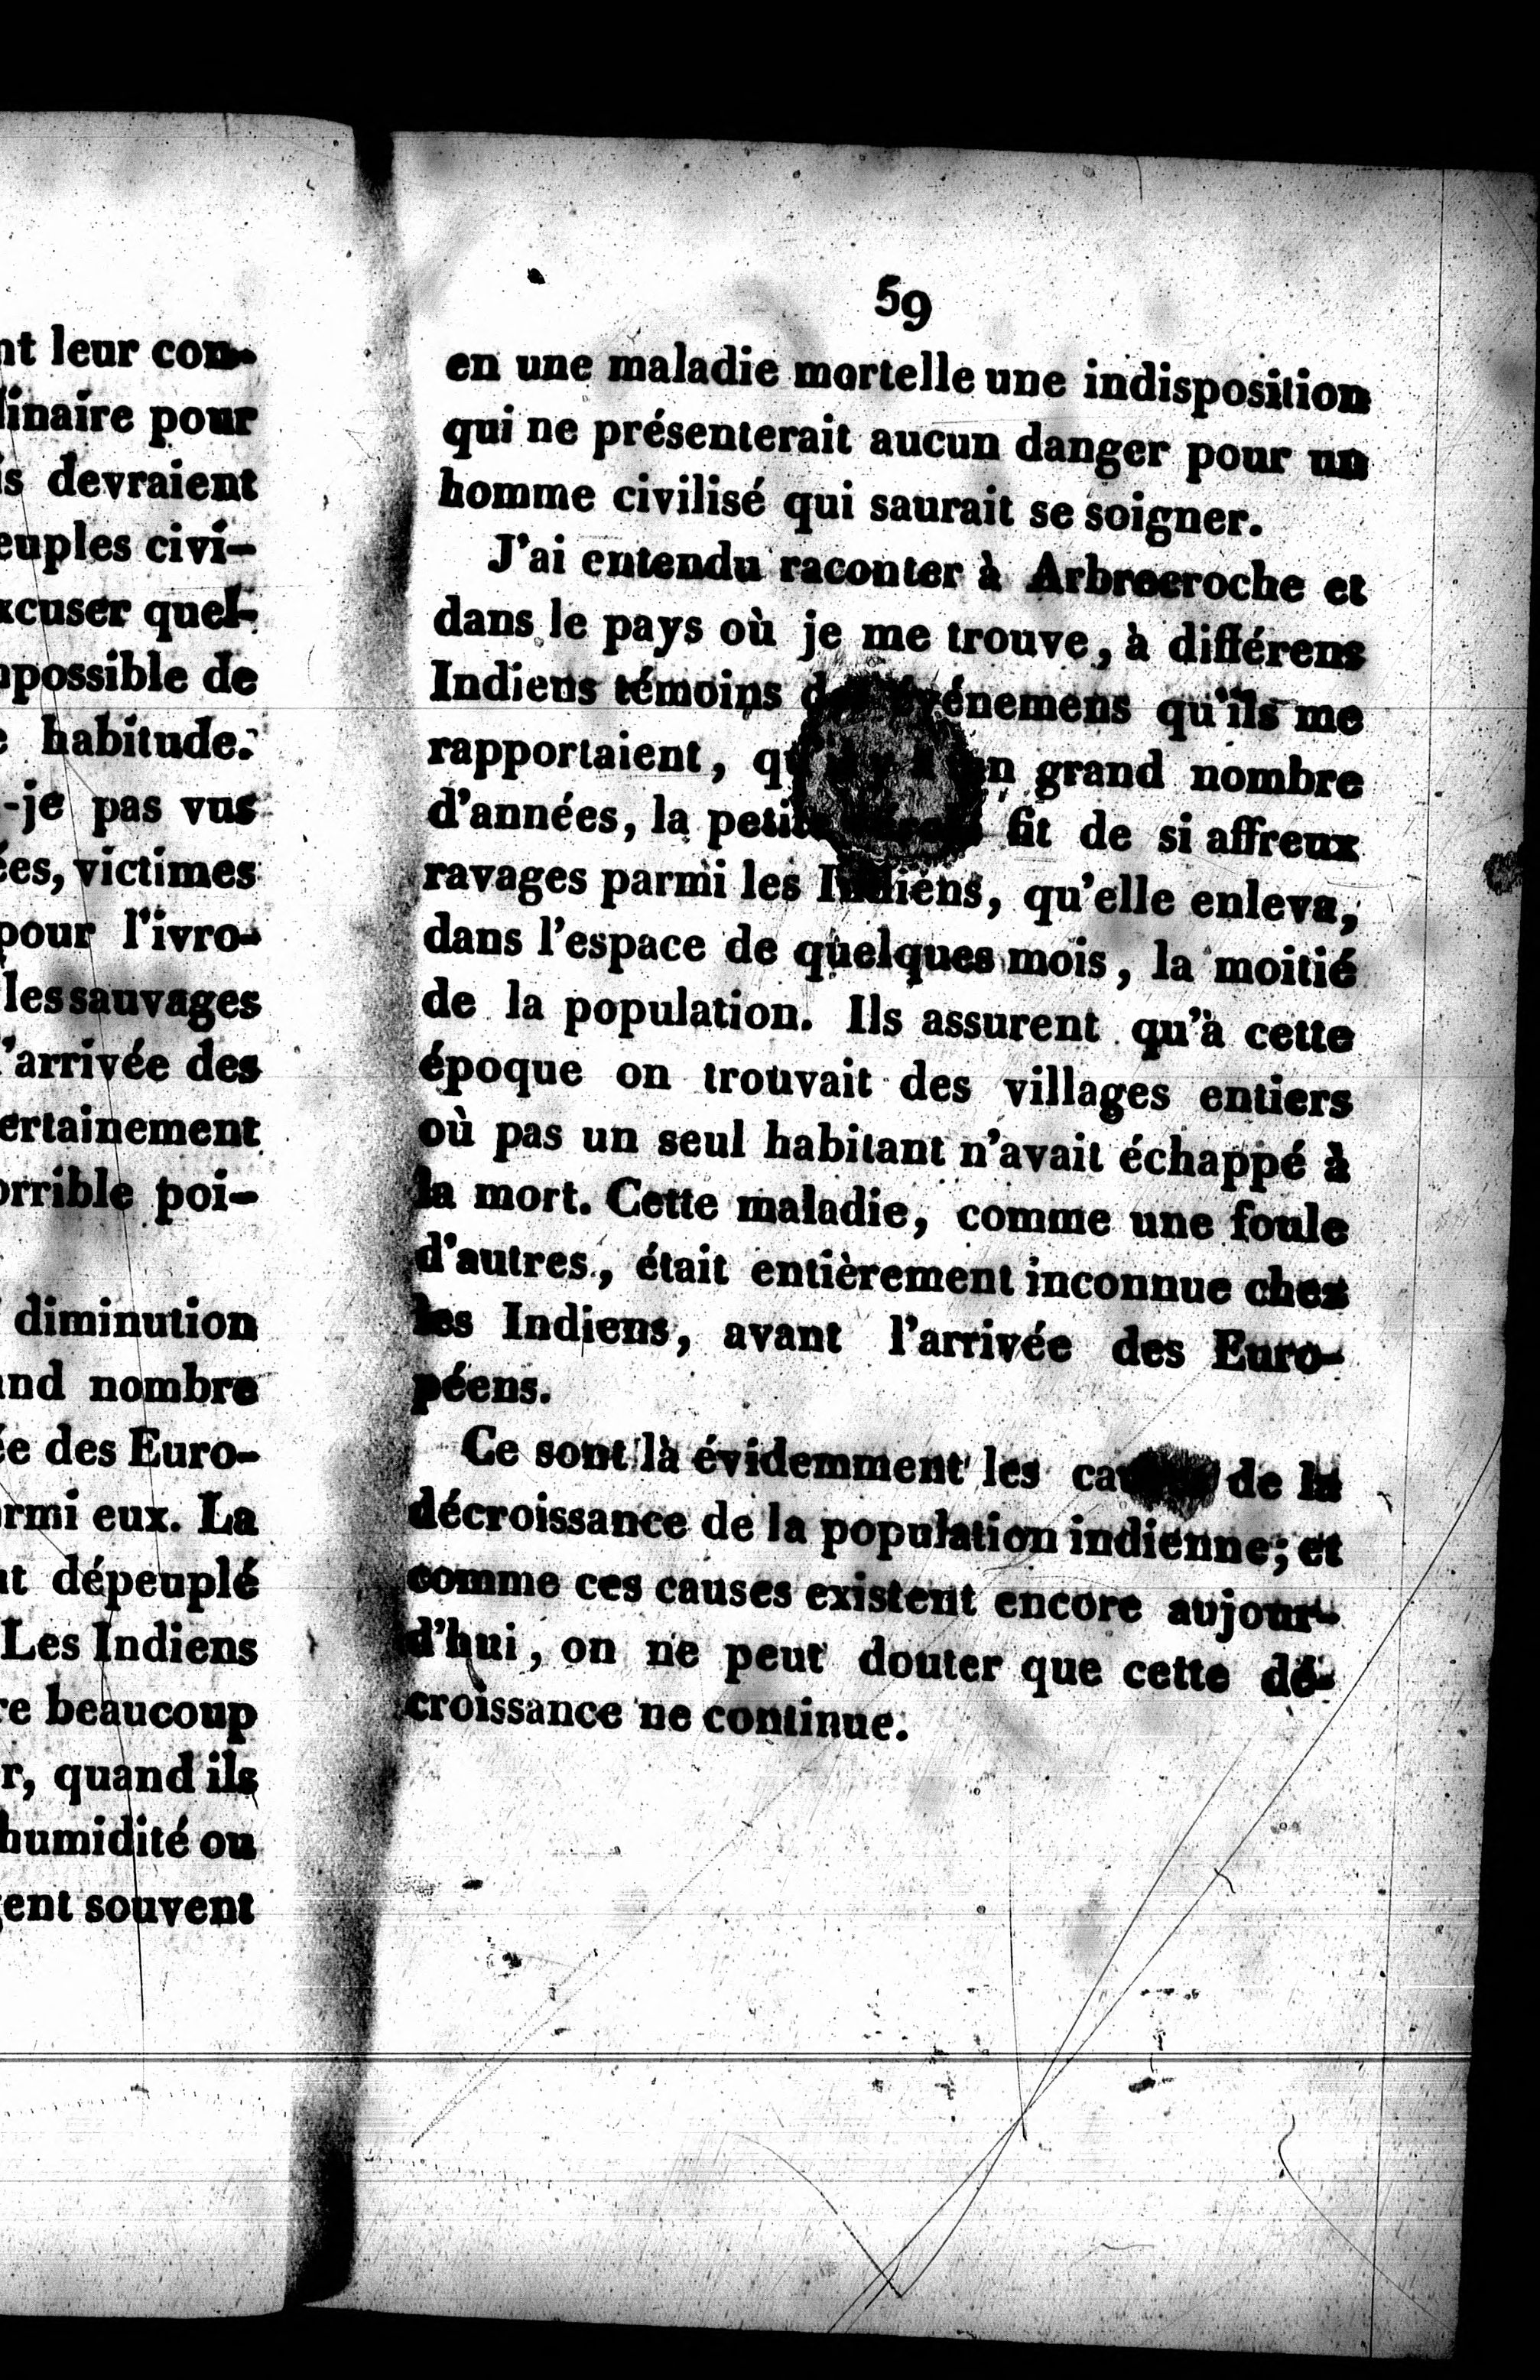 nt leur con-
linaire pour
is devraient
euples civi-
xcuser quel-
npossible de
e habitude.
-je pas vus
ées, victimes
pour l'ivro-
les sauvages
l'arrivée des
ertainement
orrible poi-
diminution
and nombre
ée des Euro-
rmi eux. La
nt dépeuplé
Les Indiens
re beaucoup
r, quand ils
humidité ou
gent souvent
59
en une maladie mortelle une indisposition
qui ne présenterait aucun danger pour un
homme civilisé qui saurait se soigner.
J'ai entendu raconter à Arbrecroche et
dans le pays où je me trouve, à différens
Indiens témoins des événemens qu'ils me
rapportaient, grand nombre
d'années, la petite vérole fit de si affreux
ravages parmi les Indiens, qu'elle enleva,
dans l'espace de quelques mois, la moitié
de la population. Ils assurent qu'à cette
époque on trouvait des villages entiers
où pas un seul habitant n'avait échappé à
la mort. Cette maladie, comme une foule
d'autres, était entièrement inconnue chez
les Indiens, avant l'arrivée des Euro-
péens.
Ce sont là évidemment les causes de la
décroissance de la population indienne; et
comme ces causes existent encore aujour-
d'hui, on ne peut douter que cette dé-
croissance ne continue.